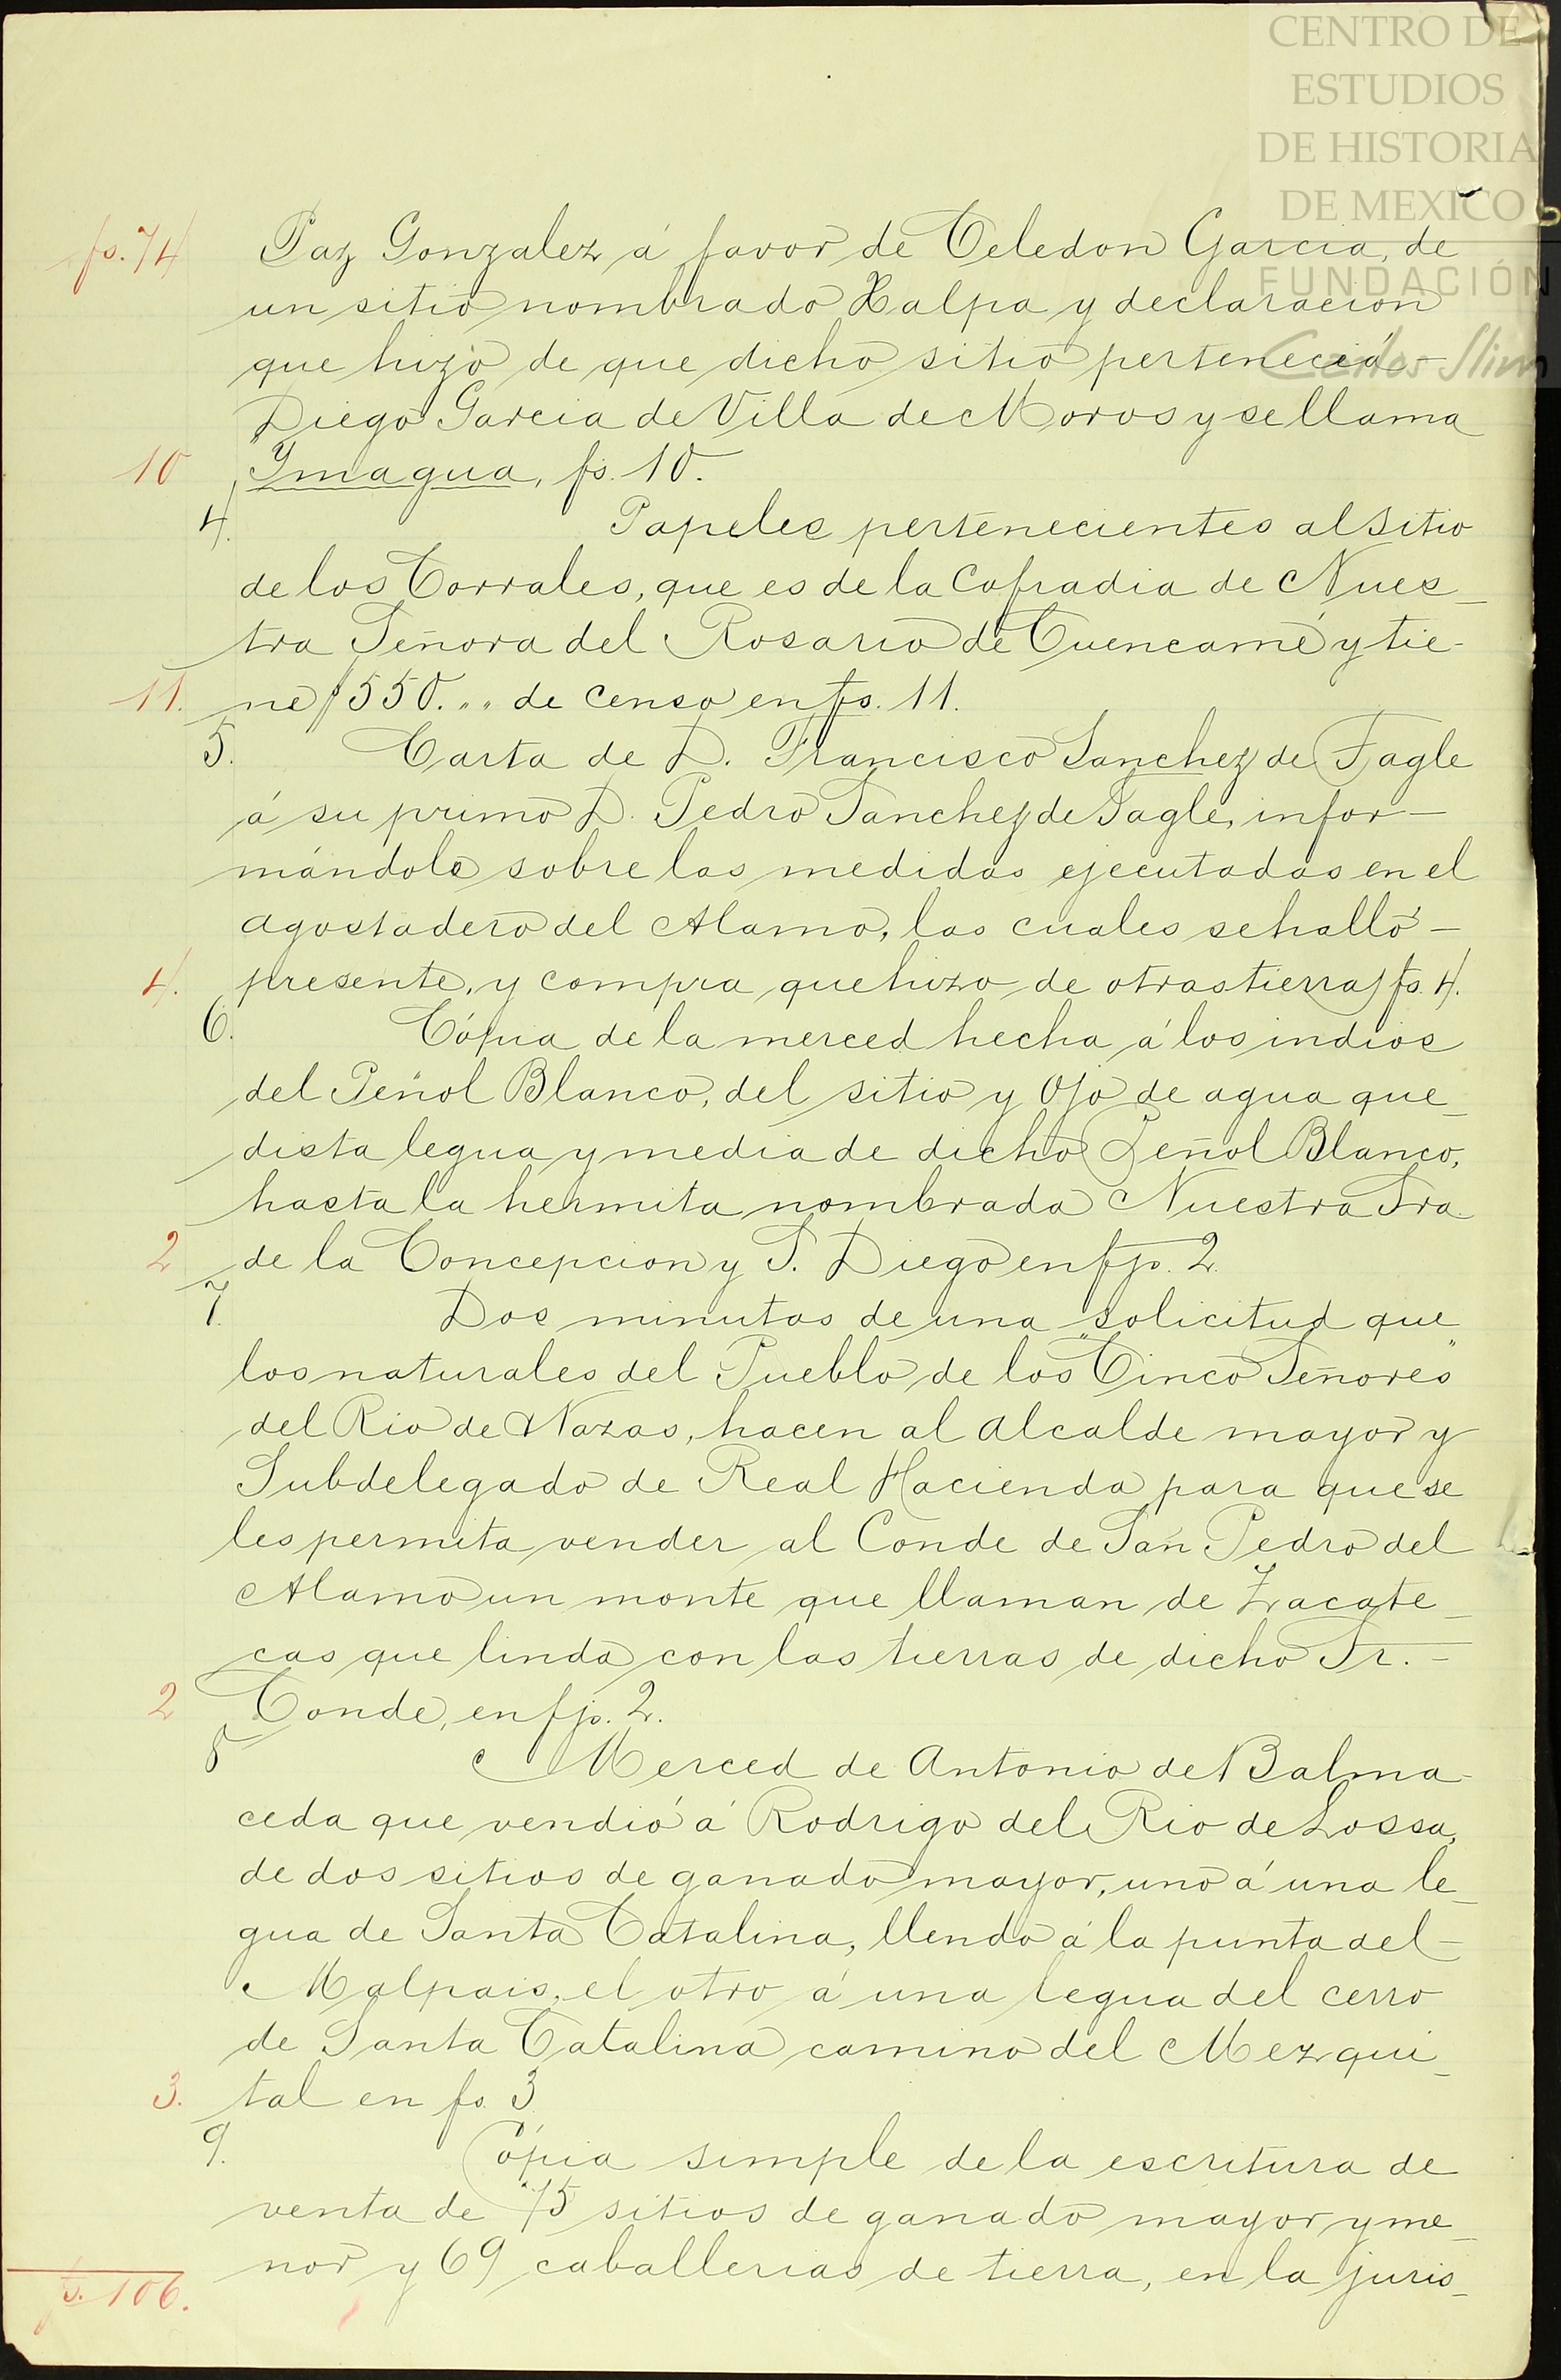 CENTRO DE
ESTUDIOS
DE HISTORIA
DE MEXICO
FUNDACIÓN
Carlos Slim
fs. 74 Paz Gonzalez á favor de Celedon Garcia, de
un sitio nombrado Xalpa y declaracion
que hizo de que dicho sitio pertenecia
Diego Garcia de Villa de Moros y se llama
10 "Ymagua, fs. 10.
4. Papeles pertenecientes al sitio
de los Corrales, que es de la Cofradia de Nues_
tra Señora del Rosario de Cuencamé y tie-
11. ne $550. " de censo en fs. 11.
5. Carta de D. Francisco Sanchez de Tagle
á su primo D. Pedro Sanchez de Tagle, infor—
mándole sobre las medidas ejecutadas en el
agostadero del Alamo, las cuales se halló—
4. presente, y compra que hizo de otras tierras fs. 4.
6. Cópia de la merced hecha á los indios
del Peñol Blanco, del sitio y Ojo de agua que_
dista legua y media de dicho Peñol Blanco,
hasta la hermita nombrada Nuestra Sra.
2 de la Concepcion y S. Diego en fjs. 2.
7. Dos minutas de una solicitud que
los naturales del Pueblo de los "Cinco Señores"
del Rio de Nazas, hacen al alcalde mayor y
Subdelegado de Real Hacienda para que se
les permita vender al Conde de San Pedro del
Alamo un monte que llaman de Zacate_
cas que linda con las tierras de dicho Sr.—
2 Conde, en fjs. 2.
8 Merced de Antonio de Balma-
ceda que vendió á Rodrigo del Rio de Lossa,
de dos sitios de ganado mayor, uno á una le_
gua de Santa Catalina, llendo á la punta del—
Malpais, el otro á una legua del cerro
de Santa Catalina camino del Mezqui_
3. tal en fs. 3
9. Cópia simple de la escritura de
venta de 75 sitios de ganado mayor y me_
nor y 69 caballerias de tierra, en la juris_
fs. 106.